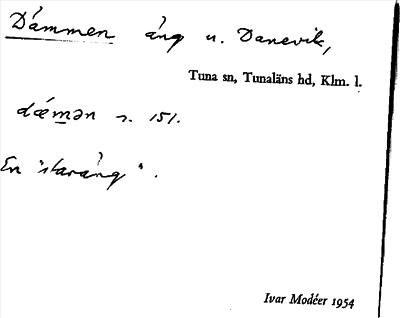 Dämmen äng u. Danevik,
Tuna sn, Tunaläns hd, Klm. l.
dæ´mən s. 151.
En "staräng".
Ivar Modéer 1954